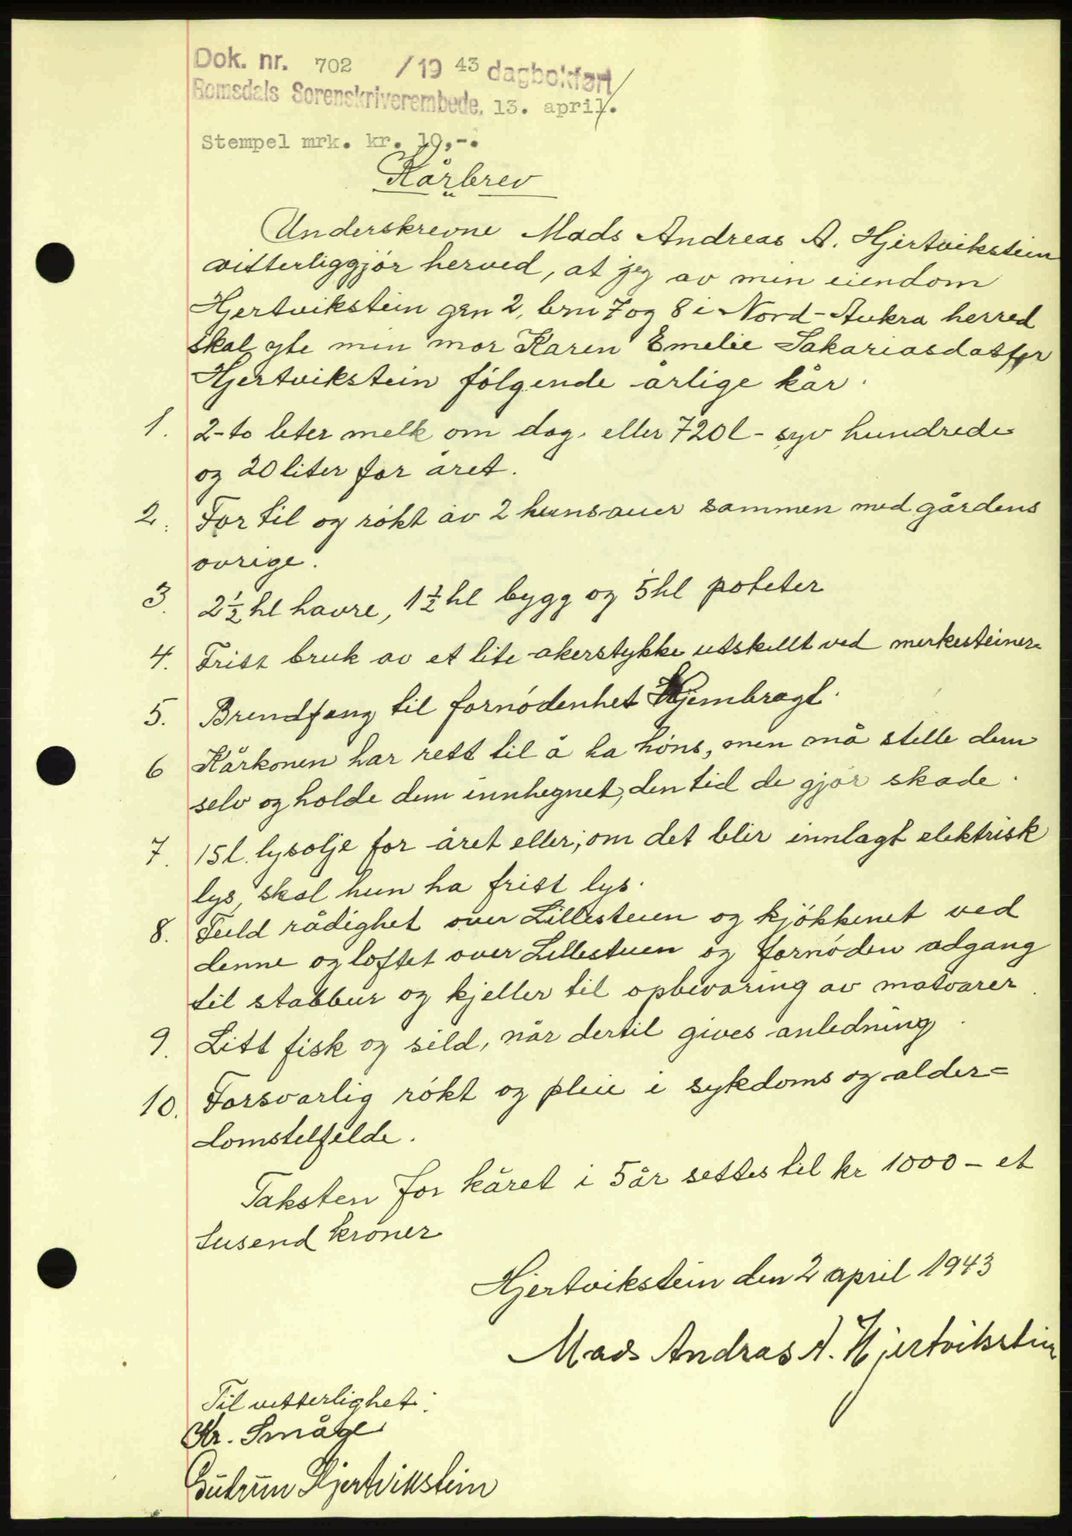 Dok. nr. 702 /19 43 dagbokført
Romsdals Sorenskriverembede, 13. april.
Stempel mrk. kr. 10,-.
Kårbrev
Underskrevne Mads Andreas A. Hjertvikstein
vitterliggjør herved, at jeg av min eiendom
Hjertvikstein grn 2, brn 7 og 8 i Nord-Aukra herred
skal yte min mor Karen Emelie Sakariasdatter
Hjertvikstein følgende årlige kår.
1. 2-to liter melk om dag. eller 720 l - syv hundrede
og 20 liter for året.
2. For til og røkt av 2 hunsauer sammen med gårdens
øvrige.
3. 2 1/2 hl havre, 1 1/2 hl bygg og 5 hl poteter
4. Fritt bruk av et lite akerstykke utskillt ved merkesteiner
5. Brendfang til fornødenhet Hjembragt.
6 Kårkonen har rett til å ha høns, men må stelle dem
selv og holde dem innhegnet, den tid de gjør skade.
7. 15 l. lysolje for året eller, om det blir innlagt elektrisk
lys, skal hun ha fritt lys.
8. Fuld rådighet over Lillesteuen og kjøkkenet ved
denne og loftet over Lillestuen og fornøden adgang
til stabbur og kjeller til opbevaring av matvarer.
9. Litt fisk og sild, når dertil gives anledning.
10. Forsvarlig røkt og pleie i sykdoms og alder=
domstelfelde.
Taksten for kåret i 5 år settes til kr 1000 - et
tusend kroner
Hjertvikstein den 2 april 1943
Mads Andras A. Hjertvikstein
Til vitterlighet:
Kr. Småge
Gudrun Hjertvikstein